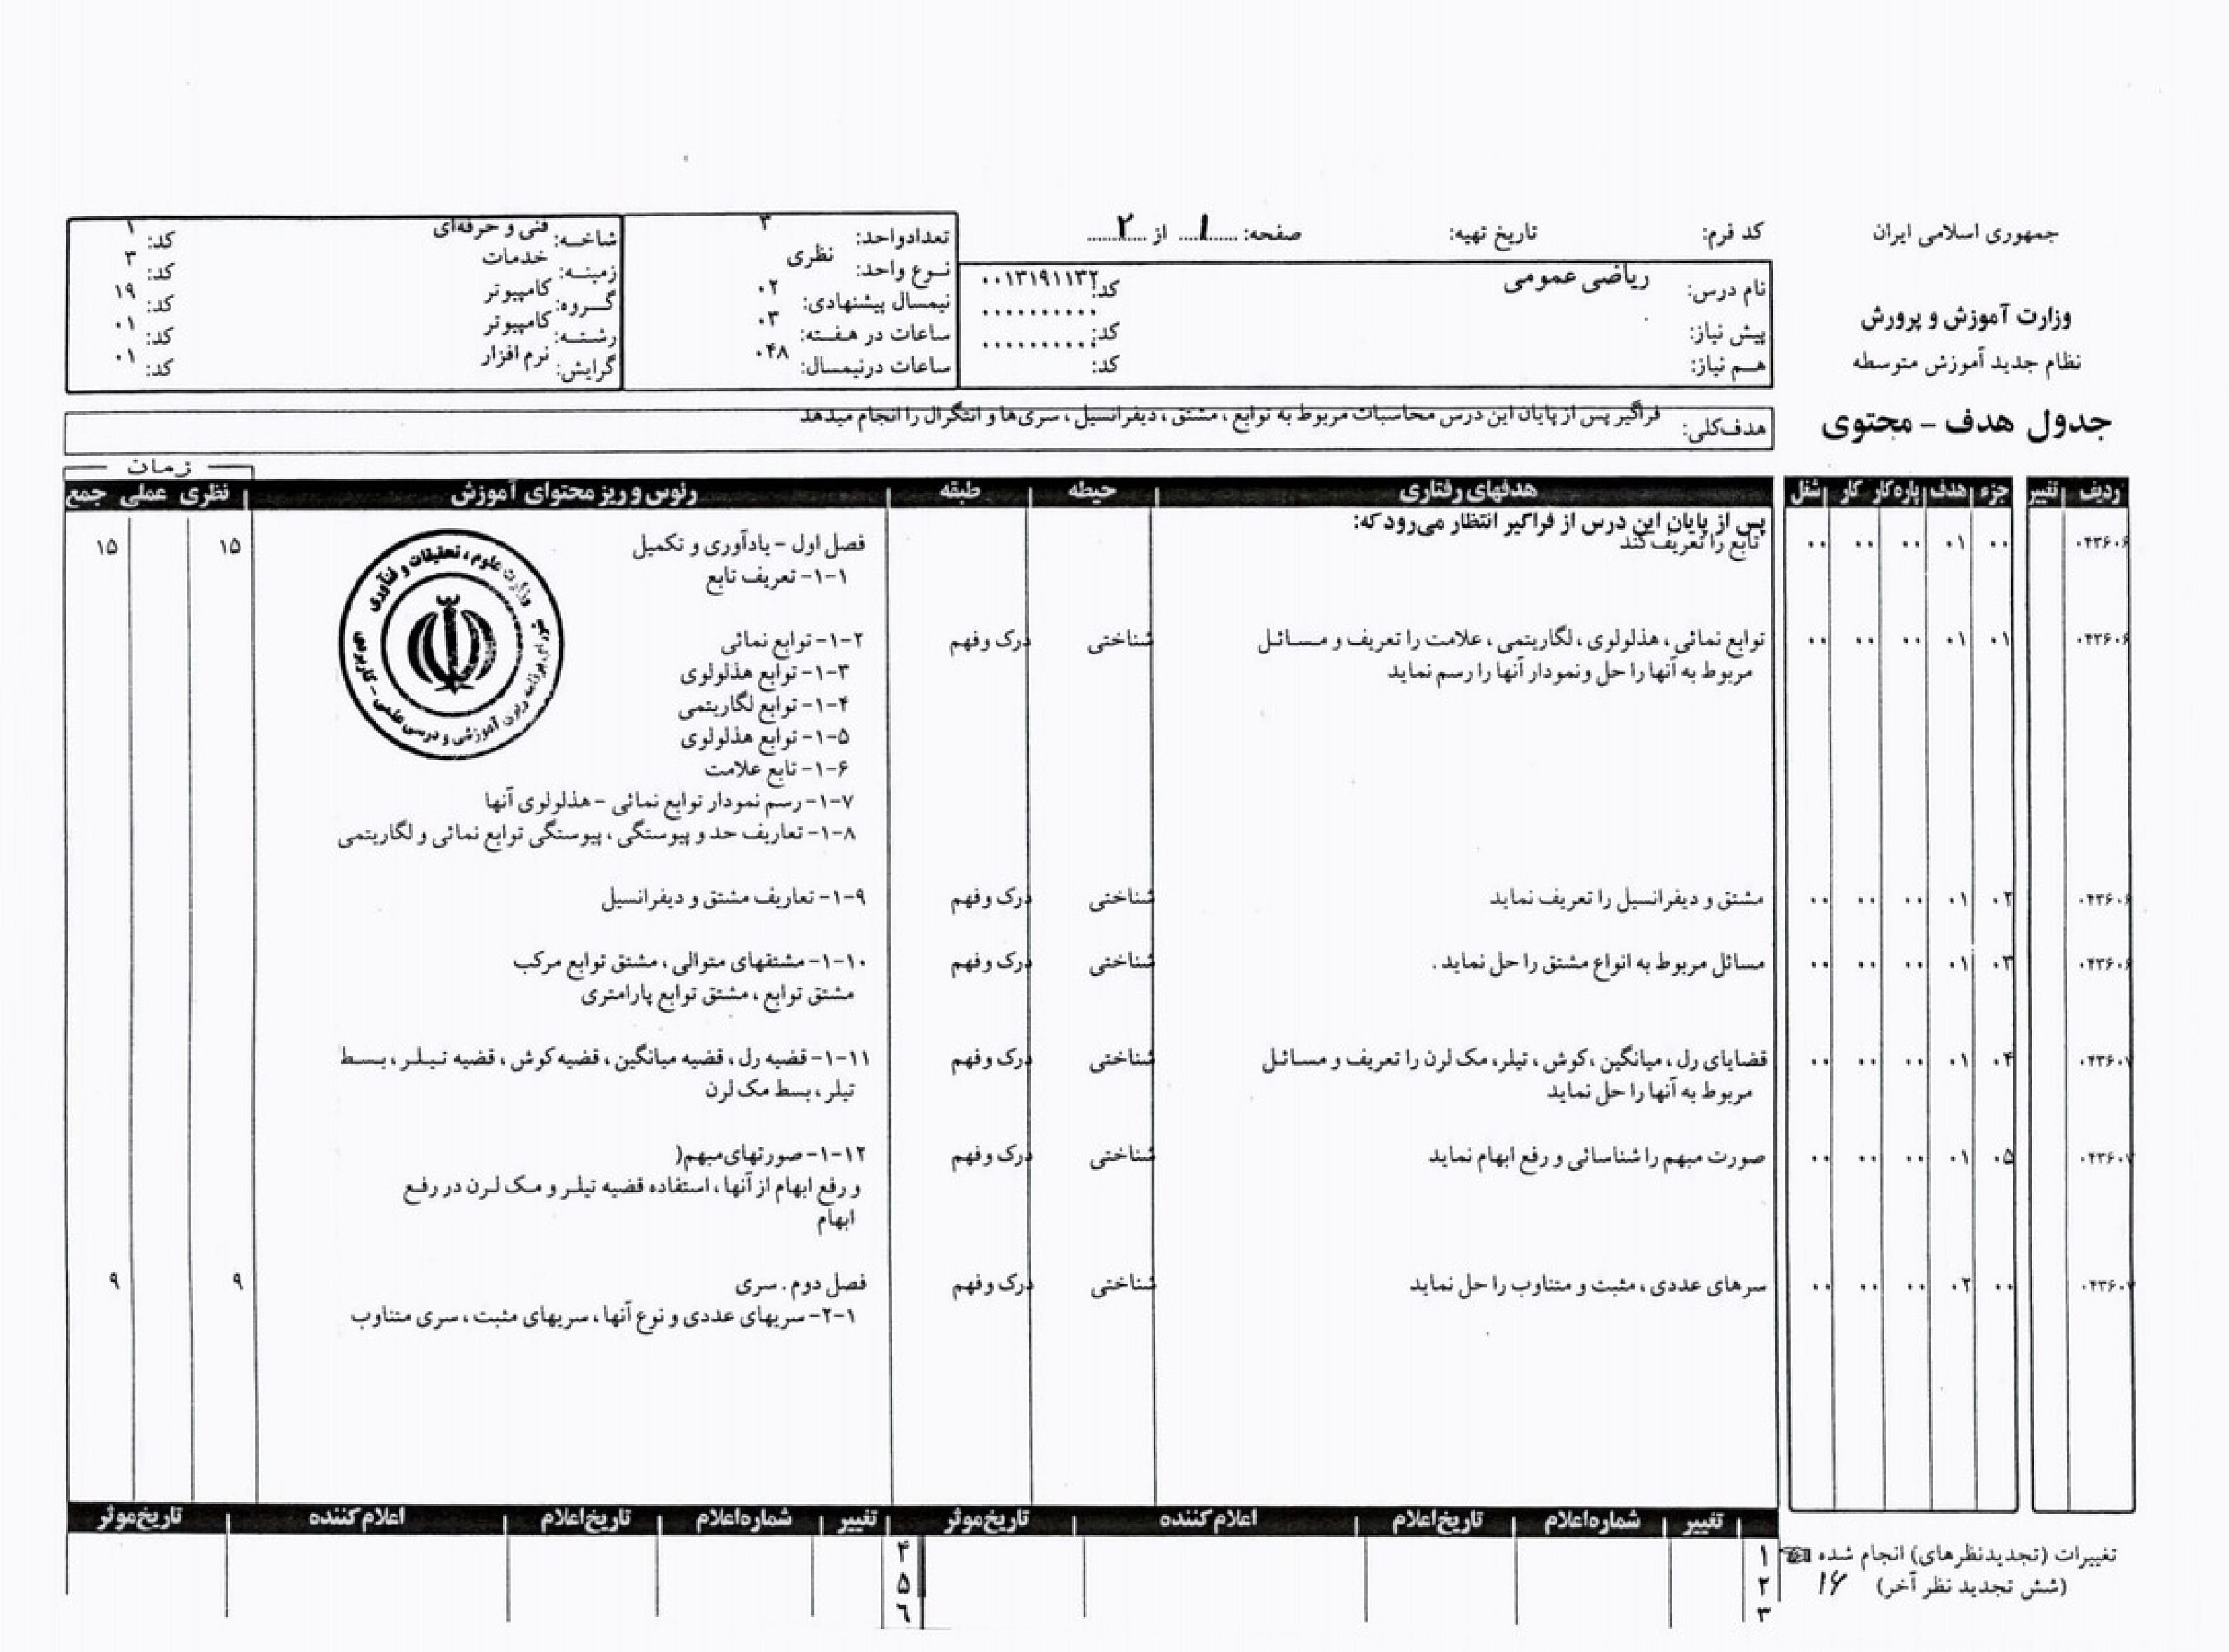 جمهوری اسلامی ایران
وزارت آموزش و پرورش
نظام جدید آموزش متوسطه
جدول هدف - محتوی
کد فرم: تاریخ تهیه: صفحه: ۱ از ۲
نام درس: ریاضی عمومی کد: ۰۰۱۳۱۹۱۱۳۲
پیش نیاز: کد: ..........
هـم نیاز: کد: ..........
تعدادواحد: ۳
نـوع واحد: نظری
نیمسال پیشنهادی: ۰۲
ساعات در هـفته: ۰۳
ساعات درنیمسال: ۰۴۸
شاخـه: فنی و حرفه‌ای کد: ۱
زمینـه: خدمات کد: ۳
گـروه: کامپیوتر کد: ۱۹
رشتـه: کامپیوتر کد: ۰۱
گرایش: نرم افزار کد: ۰۱
هدف‌کلی: فراگیر پس از پایان این درس محاسبات مربوط به توابع ، مشتق ، دیفرانسیل ، سری‌ها و انتگرال را انجام میدهد
زمان
ردیف تغییر جزء هدف پاره‌کار کار شغل هدفهای رفتاری حیطه طبقه رئوس و ریز محتوای آموزش نظری عملی جمع
پس از پایان این درس از فراگیر انتظار می‌رود که:
۰۰ ۰۱ ۰۰ ۰۰ ۰۰ تابع را تعریف کند فصل اول - یادآوری و تکمیل ۱۵ ۱۵
۱-۱- تعریف تابع
۰۱ ۰۱ ۰۰ ۰۰ ۰۰ توابع نمائی ، هذلولوی ، لگاریتمی ، علامت را تعریف و مسـائـل شناختی درک وفهم ۱-۲- توابع نمائی
مربوط به آنها را حل ونمودار آنها را رسم نماید ۱-۳- توابع هذلولوی
۱-۴- توابع لگاریتمی
۱-۵- توابع هذلولوی
۱-۶- تابع علامت
۱-۷- رسم نمودار توابع نمائی - هذلولوی آنها
۱-۸- تعاریف حد و پیوستگی ، پیوستگی توابع نمائی و لگاریتمی
۰۲ ۰۱ ۰۰ ۰۰ ۰۰ مشتق و دیفرانسیل را تعریف نماید شناختی درک وفهم ۱-۹- تعاریف مشتق و دیفرانسیل
۰۳ ۰۱ ۰۰ ۰۰ ۰۰ مسائل مربوط به انواع مشتق را حل نماید . شناختی درک وفهم ۱-۱۰- مشتقهای متوالی ، مشتق توابع مرکب
مشتق توابع ، مشتق توابع پارامتری
۰۴ ۰۱ ۰۰ ۰۰ ۰۰ قضایای رل ، میانگین ،کوش ، تیلر، مک لرن را تعریف و مسـائـل شناختی درک وفهم ۱-۱۱- قضیه رل، قضیه میانگین، قضیه کوش ، قضیه تـیلـر ، بـسـط
مربوط به آنها را حل نماید تیلر، بسط مک لرن
۰۵ ۰۱ ۰۰ ۰۰ ۰۰ صورت مبهم را شناسائی و رفع ابهام نماید شناختی درک وفهم ۱-۱۲- صورتهای مبهم(
و رفع ابهام از آنها، استفاده قضیه تیلـر و مـک لـرن در رفـع
ابهام
۰۰ ۰۲ ۰۰ ۰۰ ۰۰ سرهای عددی ، مثبت و متناوب را حل نماید شناختی درک وفهم فصل دوم . سری ۹ ۹
۲-۱- سریهای عددی و نوع آنها، سریهای مثبت ، سری متناوب
وزارت علوم ، تحقیقات و فنآوری
شورای برنامه ریزی آموزشی و درسی علمی - کاربردی
تغییر شماره‌اعلام تاریخ‌اعلام اعلام کننده تاریخ موثر تغییر شماره‌اعلام تاریخ‌اعلام اعلام کننده تاریخ موثر
تغییرات (تجدیدنظرهای) انجام شده ۱ ۴
(شش تجدید نظر آخر) ۱۶ ۲ ۵
۳ ۶